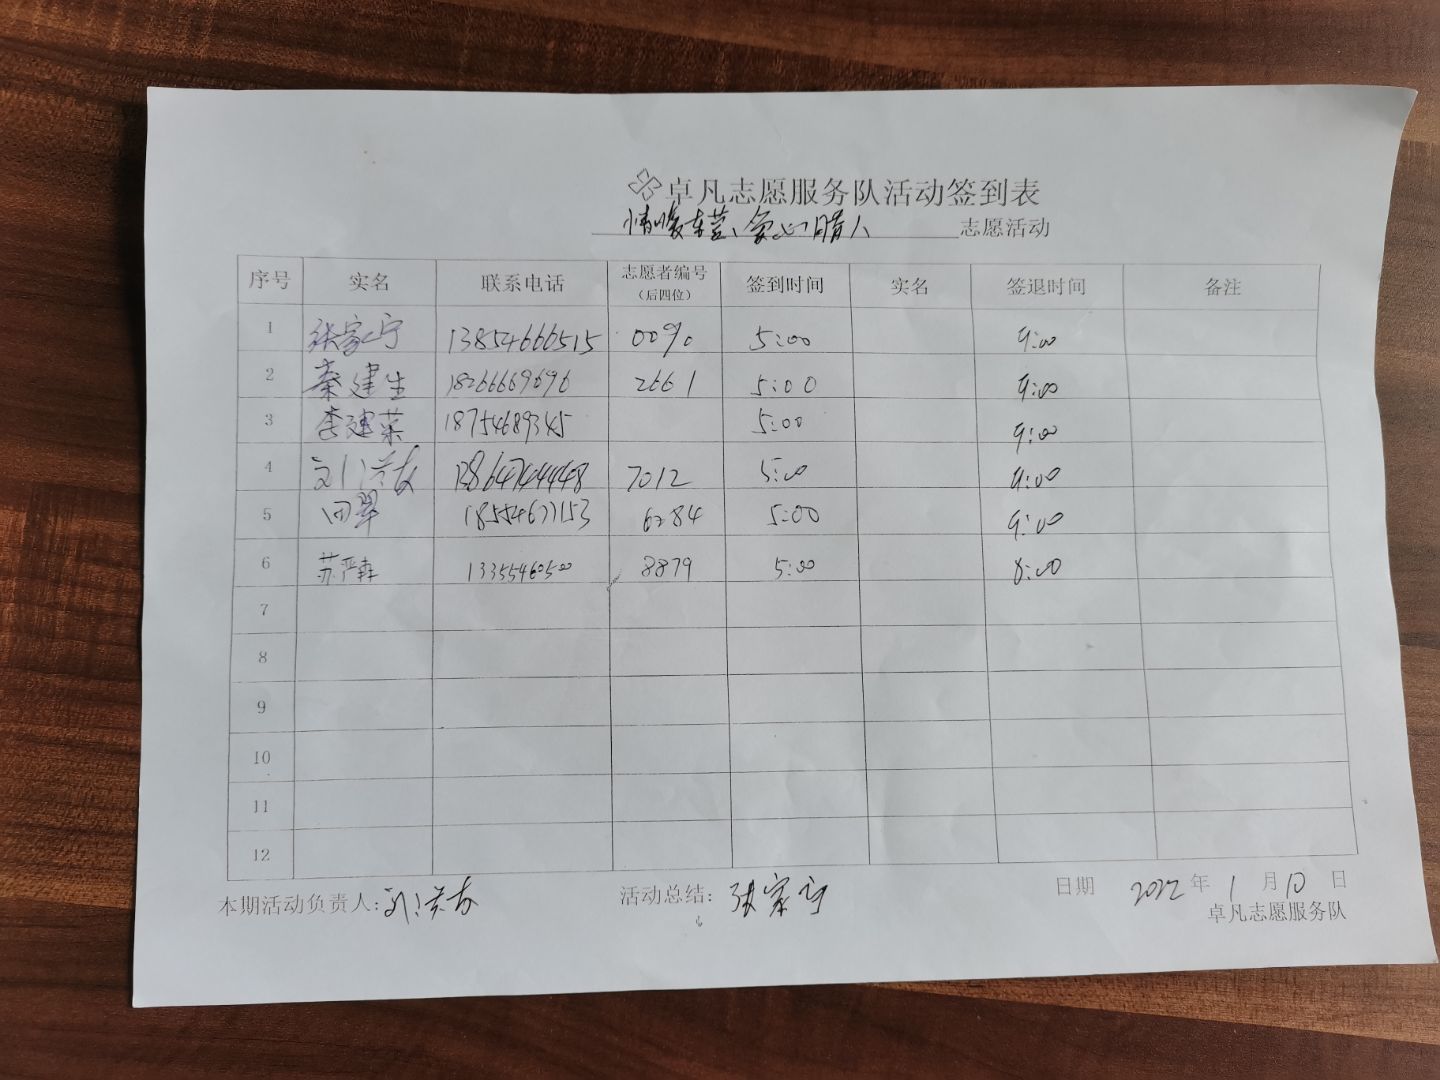 卓凡志愿服务队活动签到表
情暖东营、爱心腊八 志愿活动
序号 实名 联系电话 志愿者编号（后四位） 签到时间 实名 签退时间 备注
1 张家宁 13854666515 0090 5:00 9:00
2 秦建生 18266669696 2661 5:00 9:00
3 李建荣 18754689345 5:00 9:00
4 刘洪友 13864744448 7012 5:00 9:00
5 田翠 18554677153 6284 5:00 9:00
6 苏严森 13355460500 8879 5:00 8:00
7
8
9
10
11
12
本期活动负责人:刘洪友 活动总结:张家宁 日期 2022年1月10日
卓凡志愿服务队